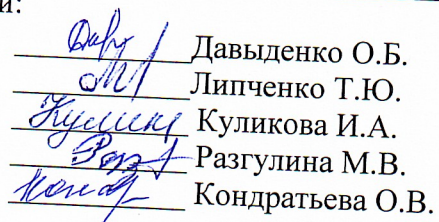 и:
Давыденко О.Б.
Липченко Т.Ю.
Куликова И.А.
Разгулина М.В.
Кондратьева О.В.